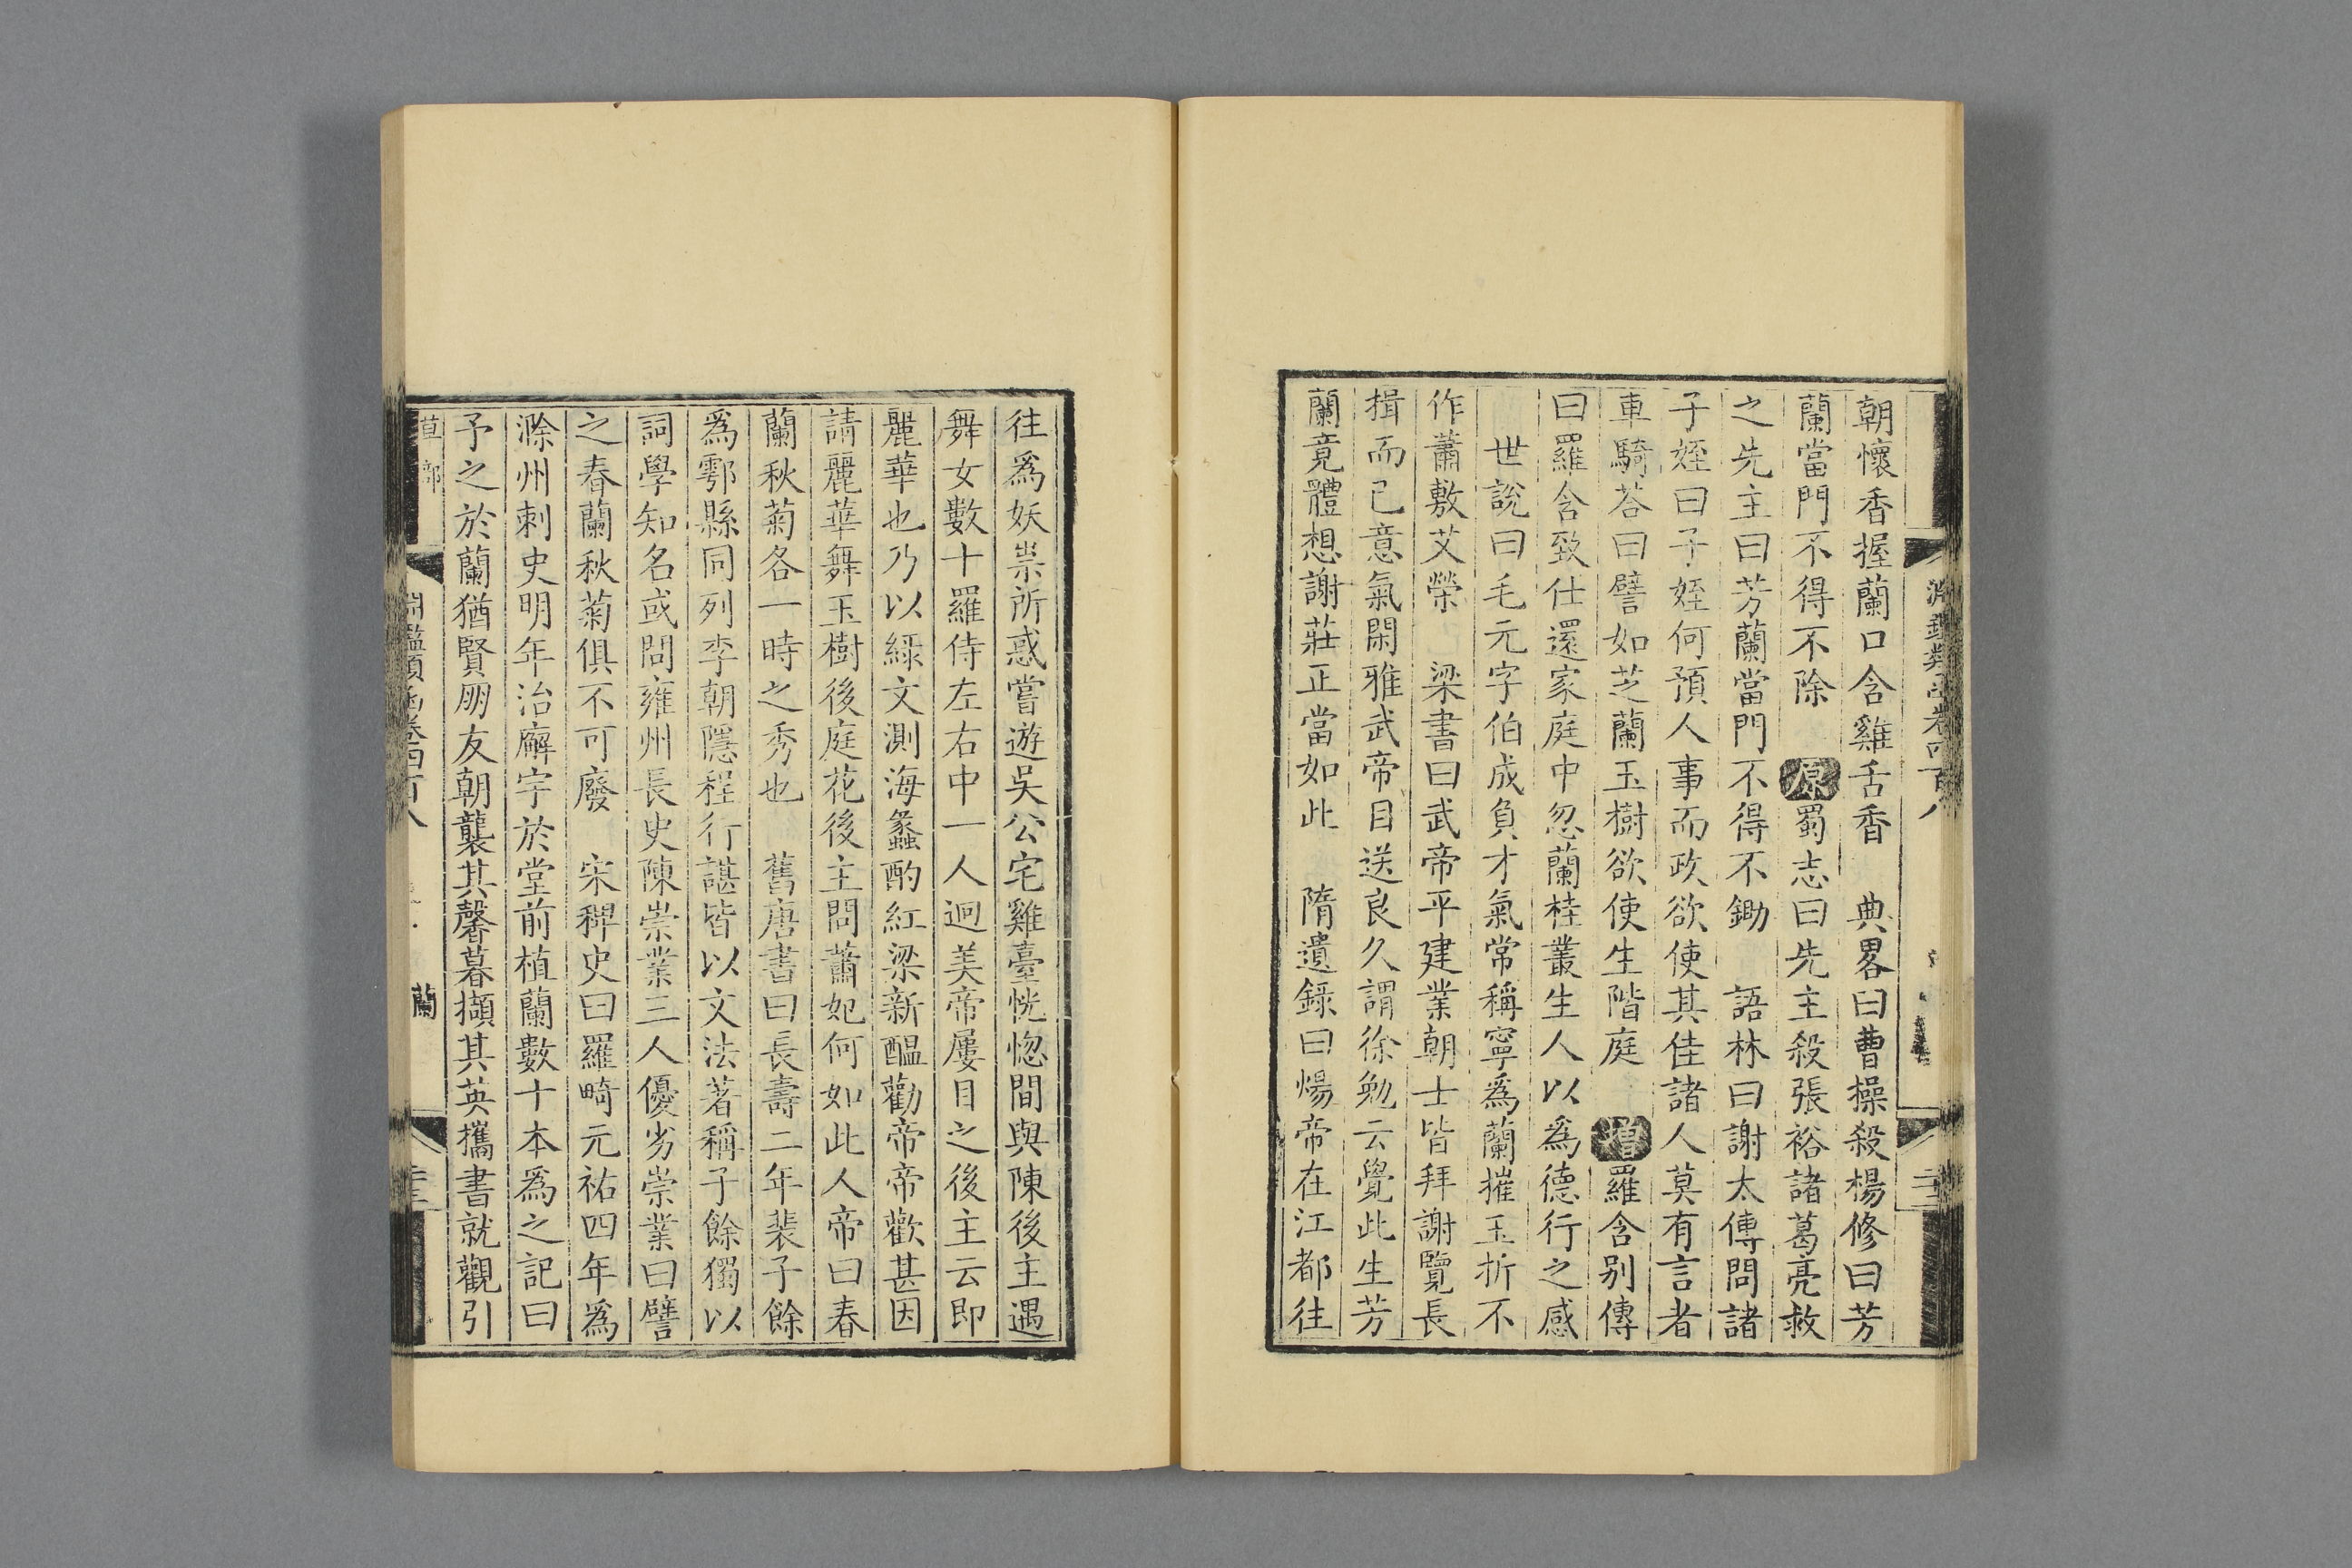 朝懷香握蘭口含雞舌香　典畧曰曹操殺楊修曰芳
蘭當門不得不除　原蜀志曰先主殺張裕諸葛亮救
之先主曰芳蘭當門不得不鋤　語林曰謝太傅問諸
子姪曰子姪何預人事而政欲使其佳諸人莫有言者
車騎荅曰譬如芝蘭玉樹欲使生階庭　增羅含別傳
曰羅含致仕還家庭中忽蘭桂叢生人以爲德行之感
世說曰毛元字伯成負才氣常稱寧爲蘭摧玉折不
作蕭敷艾榮　梁書曰武帝平建業朝士皆拜謝覽長
揖而已意氣閑雅武帝目送良久謂徐勉云覺此生芳
蘭竟體想謝莊正當如此　隋遺錄曰煬帝在江都往
往爲妖祟所惑嘗遊吳公宅雞臺恍惚間與陳後主遇
舞女數十羅侍左右中一人迥美帝屢目之後主云即
麗華也乃以綠文測海蠡酌紅梁新醞勸帝帝歡甚因
請麗華舞玉樹後庭花後主問蕭妃何如此人帝曰春
蘭秋菊各一時之秀也　舊唐書曰長壽二年裴子餘
爲鄠縣同列李朝隱程行諶皆以文法著稱子餘獨以
詞學知名或問雍州長史陳崇業三人優劣崇業曰譬
之春蘭秋菊俱不可廢　宋稗史曰羅畸元祐四年爲
滁州刺史明年治廨宇於堂前植蘭數十本爲之記曰
予之於蘭猶賢朋友朝襲其馨暮擷其英攜書就觀引
蘭